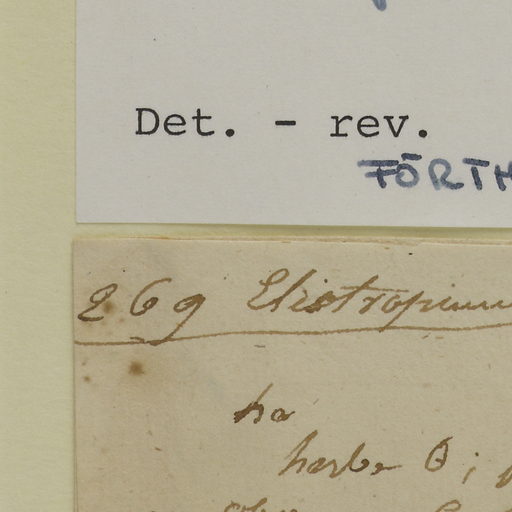 Det. - rev.
FÖRTH
269 Eliotropium
ha
herbe